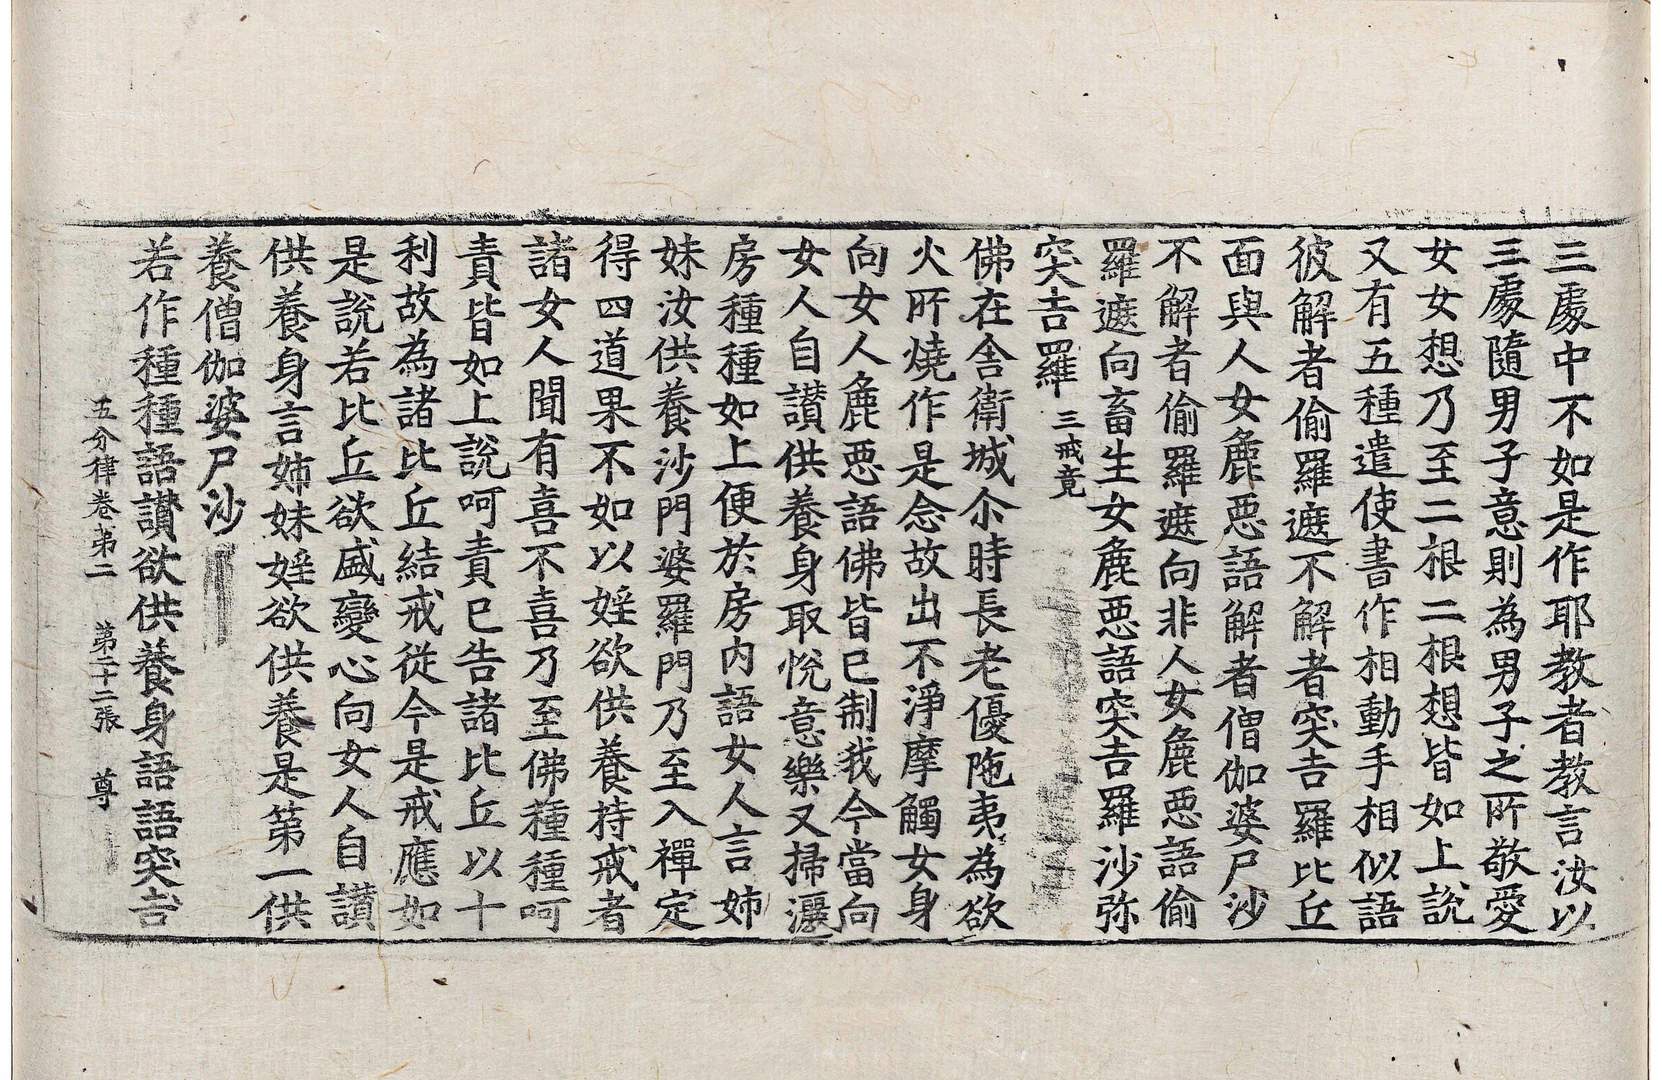 三處中不如是作耶教者教言汝以
三處隨男子意則為男子之所敬愛
女女想乃至二根二根想皆如上說
又有五種遣使書作相動手相似語
彼解者偷羅遮不解者突吉羅比丘
面與人女麁惡語解者僧伽婆尸沙
不解者偷羅遮向非人女麁惡語偷
羅遮向畜生女麁惡語突吉羅沙弥
突吉羅 三戒竟
佛在舍衛城尒時長老優陁夷為欲
火所燒作是念故出不淨摩觸女身
向女人麁惡語佛皆已制我今當向
女人自讃供養身取悅意樂又掃灑
房種種如上便於房內語女人言姉
妹汝供養沙門婆羅門乃至入禪定
得四道果不如以婬欲供養持戒者
諸女人聞有喜不喜乃至佛種種呵
責皆如上說呵責已告諸比丘以十
利故為諸比丘結戒從今是戒應如
是說若比丘欲盛變心向女人自讃
供養身言姉妹婬欲供養是第一供
養僧伽婆尸沙
若作種種語讃欲供養身語語突吉
五分律卷第二 第二十二張 尊